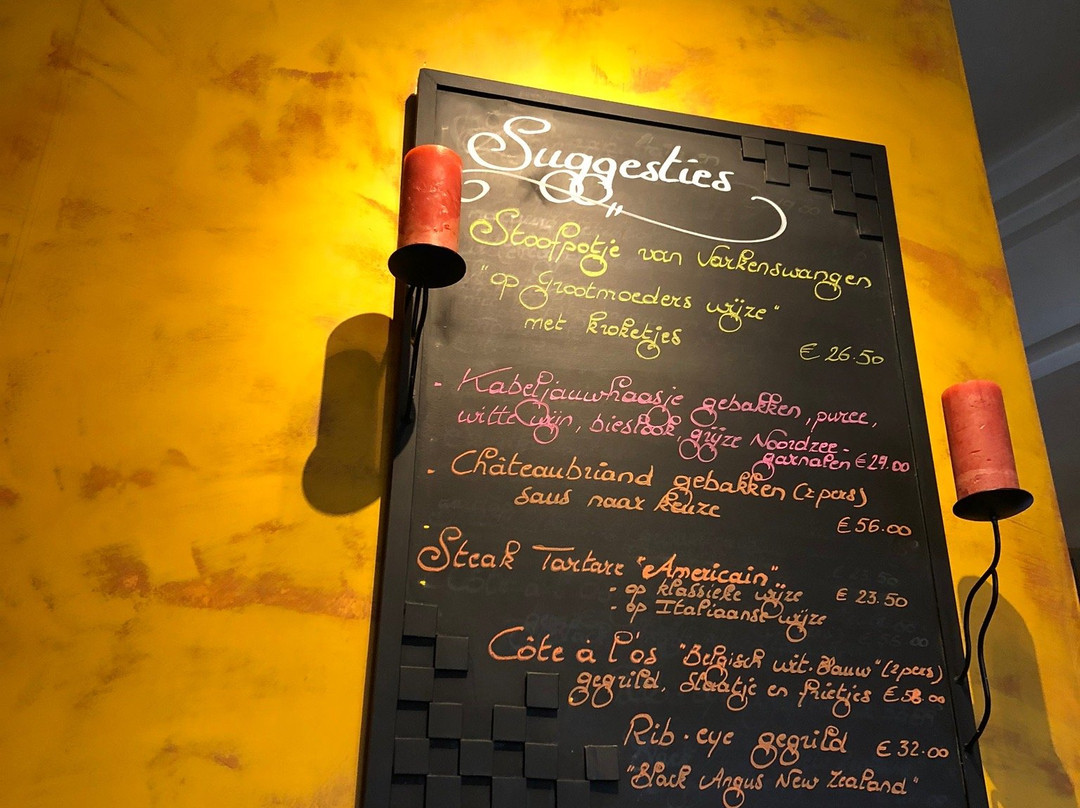 Suggesties
Stoofpotje van Varkenswangen
"op Grootmoeders wijze"
met kroketjes
€ 26.50
- Kabeljauwhaasje gebakken, puree,
witte wijn, bieslook, grijze Noordzee-
garnalen € 29.00
- Châteaubriand gebakken (2 pers)
saus naar keuze
€ 56.00
Steak Tartare "Americain"
- op klassieke wijze € 23.50
- op Italiaanse wijze
Côte à l'os "Belgisch wit-Blauw" (2pers)
gegrild, slaatje en frietjes € 58.00
Rib-eye gegrild € 32.00
"Black Angus New Zealand"